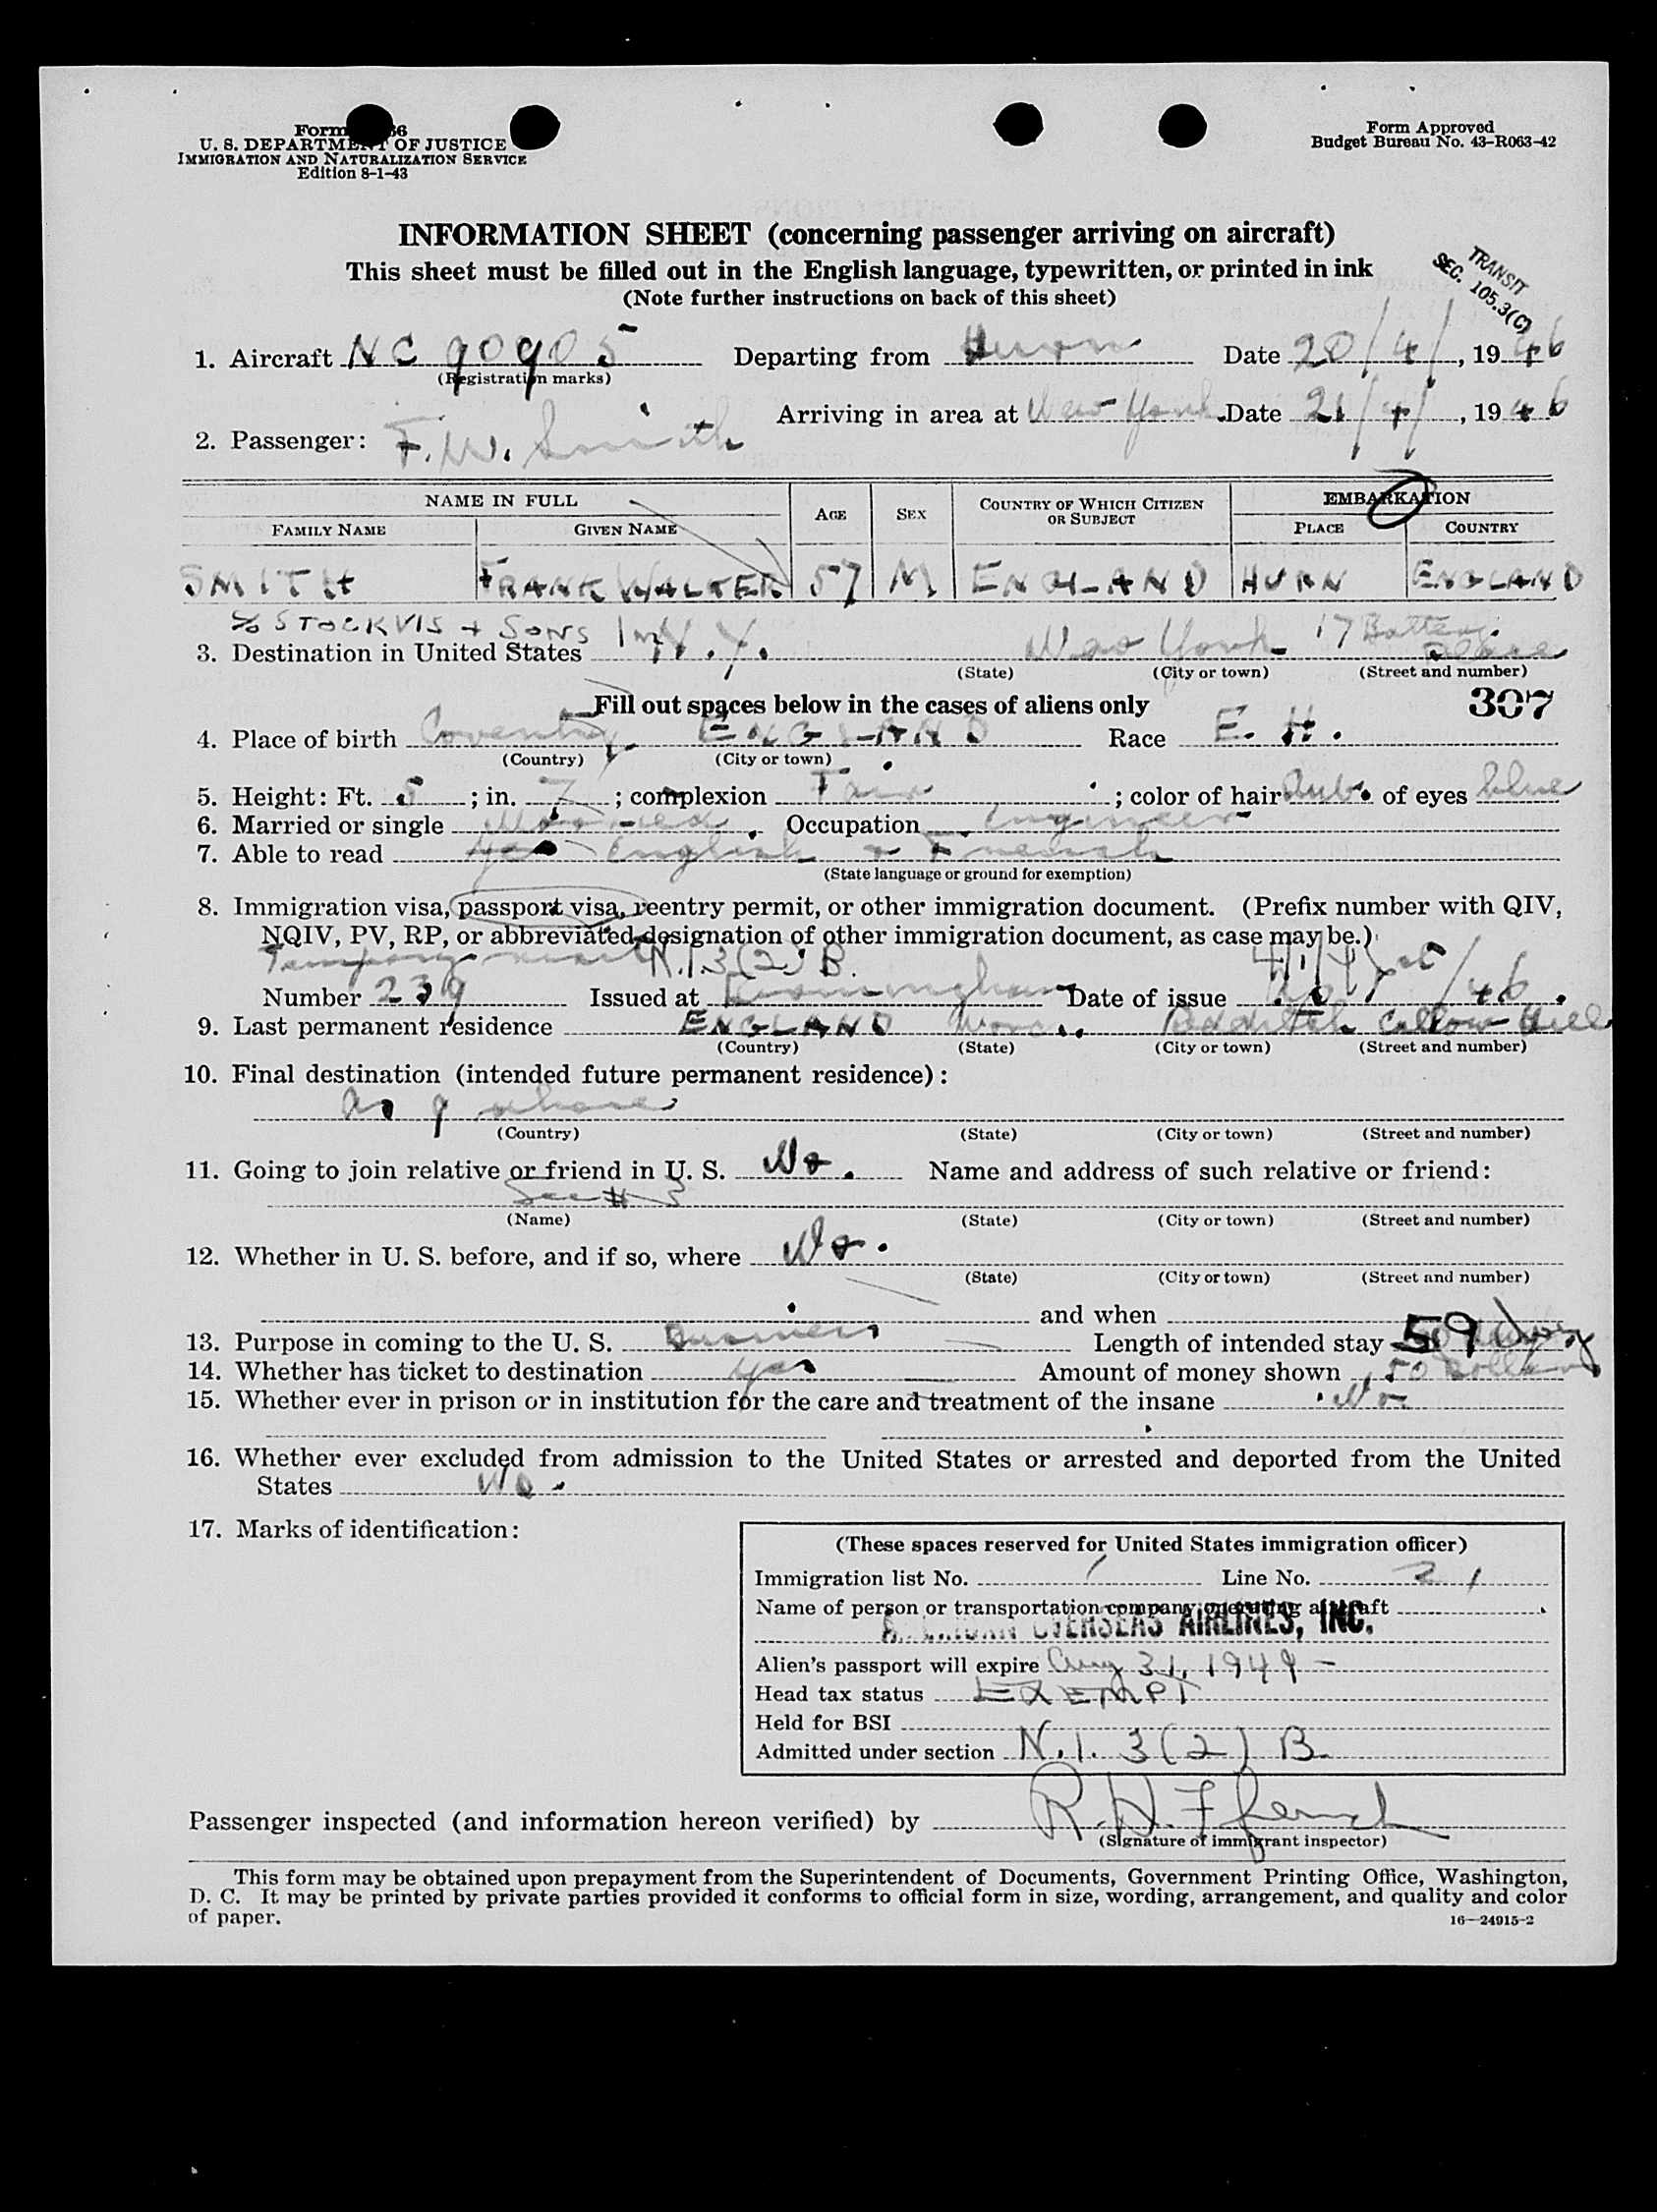 Form 66
U. S. DEPARTMENT OF JUSTICE
IMMIGRATION AND NATURALIZATION SERVICE
Edition 8-1-43
Form Approved
Budget Bureau No. 43-R063-42
INFORMATION SHEET (concerning passenger arriving on aircraft)
This sheet must be filled out in the English language, typewritten, or printed in ink
(Note further instructions on back of this sheet)
TRANSIT
SEC. 105.3(C)
1. Aircraft NC 90905 Departing from Hurn Date 20/4/, 1946
(Registration marks)
Arriving in area at New York Date 21/4/, 1946
2. Passenger: F.W. Smith
NAME IN FULL AGE SEX COUNTRY OF WHICH CITIZEN OR SUBJECT EMBARKATION
FAMILY NAME GIVEN NAME PLACE COUNTRY
SMITH FRANK WALTER 57 M ENGLAND HURN ENGLAND
% STOCKVIS + SONS Inc
3. Destination in United States N.Y. New York 17 Battery Place
(State) (City or town) (Street and number)
Fill out spaces below in the cases of aliens only 307
4. Place of birth Coventry ENGLAND Race E. H.
(Country) (City or town)
5. Height: Ft. 5; in. 7; complexion Fair; color of hair Aub. of eyes blue
6. Married or single Married. Occupation Engineer
7. Able to read Yes English + French
(State language or ground for exemption)
8. Immigration visa, passport visa, reentry permit, or other immigration document. (Prefix number with QIV,
NQIV, PV, RP, or abbreviated designation of other immigration document, as case may be.)
Tempory visit N.I. 3(2) B.
Number 239 Issued at Birmingham Date of issue /46.
9. Last permanent residence ENGLAND Worc. Redditch Callow Hill
(Country) (State) (City or town) (Street and number)
10. Final destination (intended future permanent residence):
As 9 above
(Country) (State) (City or town) (Street and number)
11. Going to join relative or friend in U. S. No. Name and address of such relative or friend:
See # 3
(Name) (State) (City or town) (Street and number)
12. Whether in U. S. before, and if so, where No.
(State) (City or town) (Street and number)
and when
13. Purpose in coming to the U. S. Business Length of intended stay 59 days
14. Whether has ticket to destination yes Amount of money shown 50 dollars
15. Whether ever in prison or in institution for the care and treatment of the insane No
16. Whether ever excluded from admission to the United States or arrested and deported from the United
States No.
17. Marks of identification:
(These spaces reserved for United States immigration officer)
Immigration list No. 1 Line No. 21
Name of person or transportation company operating aircraft
AMERICAN OVERSEAS AIRLINES, INC.
Alien's passport will expire Aug 31, 1949 -
Head tax status EXEMPT
Held for BSI
Admitted under section N.I. 3(2) B
Passenger inspected (and information hereon verified) by R.H. Ffrench
(Signature of immigrant inspector)
This form may be obtained upon prepayment from the Superintendent of Documents, Government Printing Office, Washington,
D. C. It may be printed by private parties provided it conforms to official form in size, wording, arrangement, and quality and color
of paper.
16—24915-2